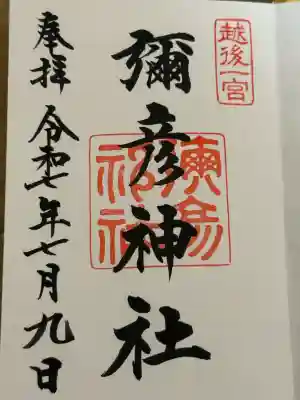 越後一宮
彌彦神社
奉拝
令和七年七月九日